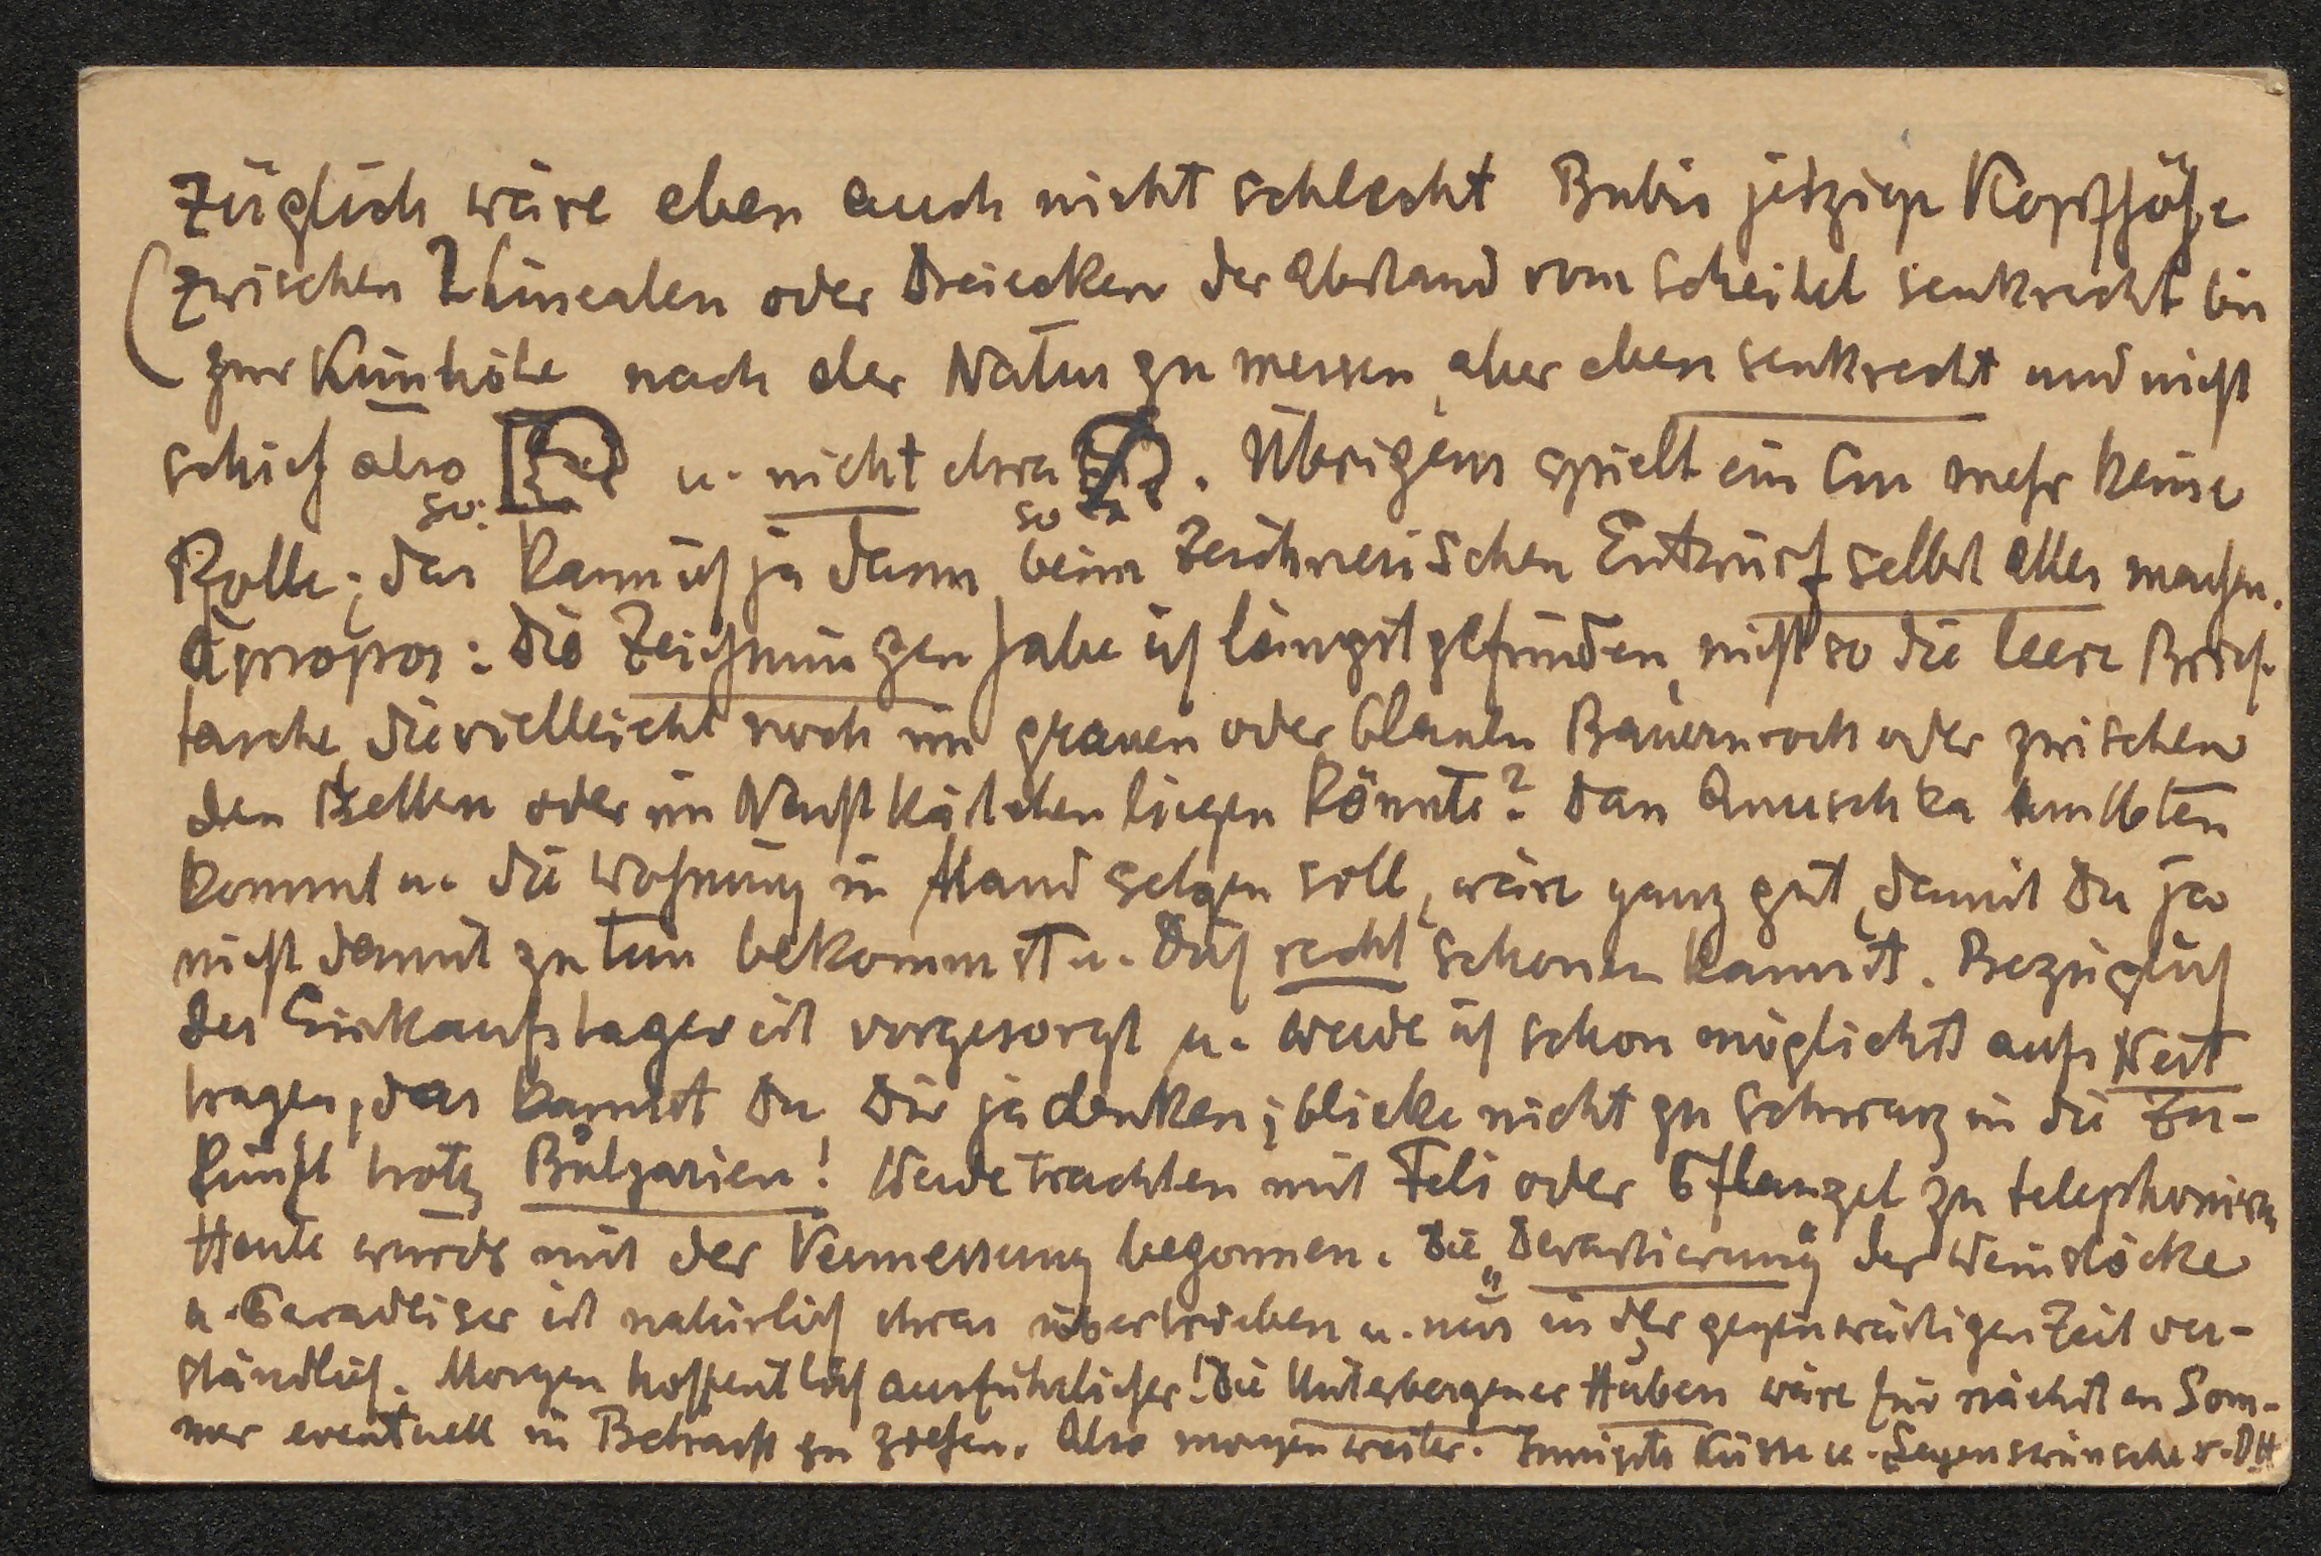 züglich wäre eben auch nicht schlecht Bubis jetzige Kopfhöhe
(zwischen 2 Linealen oder Dreiecken der Abstand vom Scheitel senkrecht bis
zur Kinnhöhe nach der Natur zu messen, aber eben senkrecht und nicht
schief also so: u. nicht etwa so . Übrigens spielt ein Cm mehr keine
Rolle; das kann ich ja dann beim zeichnerischen Entwurf selbst alles machen.
Apropos: die Zeichnungen habe ich längst gefunden, nicht so die leere Brief-
tasche, die vielleicht noch im grauen oder blauen Bauernrock oder zwischen
den Betten oder im Nachtkästchen liegen könnte? Dass Anuschka
kommt u. die Wohnung in Stand setzen soll, wäre ganz gut, damit Du ja
nicht damit zu tun bekommst u. Dich recht schonen kannst. Bezüglich
des Einkaufslager ist vorgesorgt u. werde ich schon möglichst aufs Nest
tragen, das kannst Du Dir ja denken; blicke nicht zu schwarz in die Zu-
kunft trotz Bulgarien! Werde trachten mit Feli oder Pflanzel zu telephonieren
Heute wurde mit der Vermessung begonnen. Die „Devastierung" der Weinstöcke
u. Paradeiser ist natürlich etwas übertrieben u. nur in der gegenwärtigen Zeit ver-
ständlich. Morgen hoffentlich ausführlicher! Die Unterbergener Huben wäre für nächsten Som-
mer eventuell in Betracht zu ziehen. Also morgen weiter. Innigste Küsse u. Segenswünsche v. DH